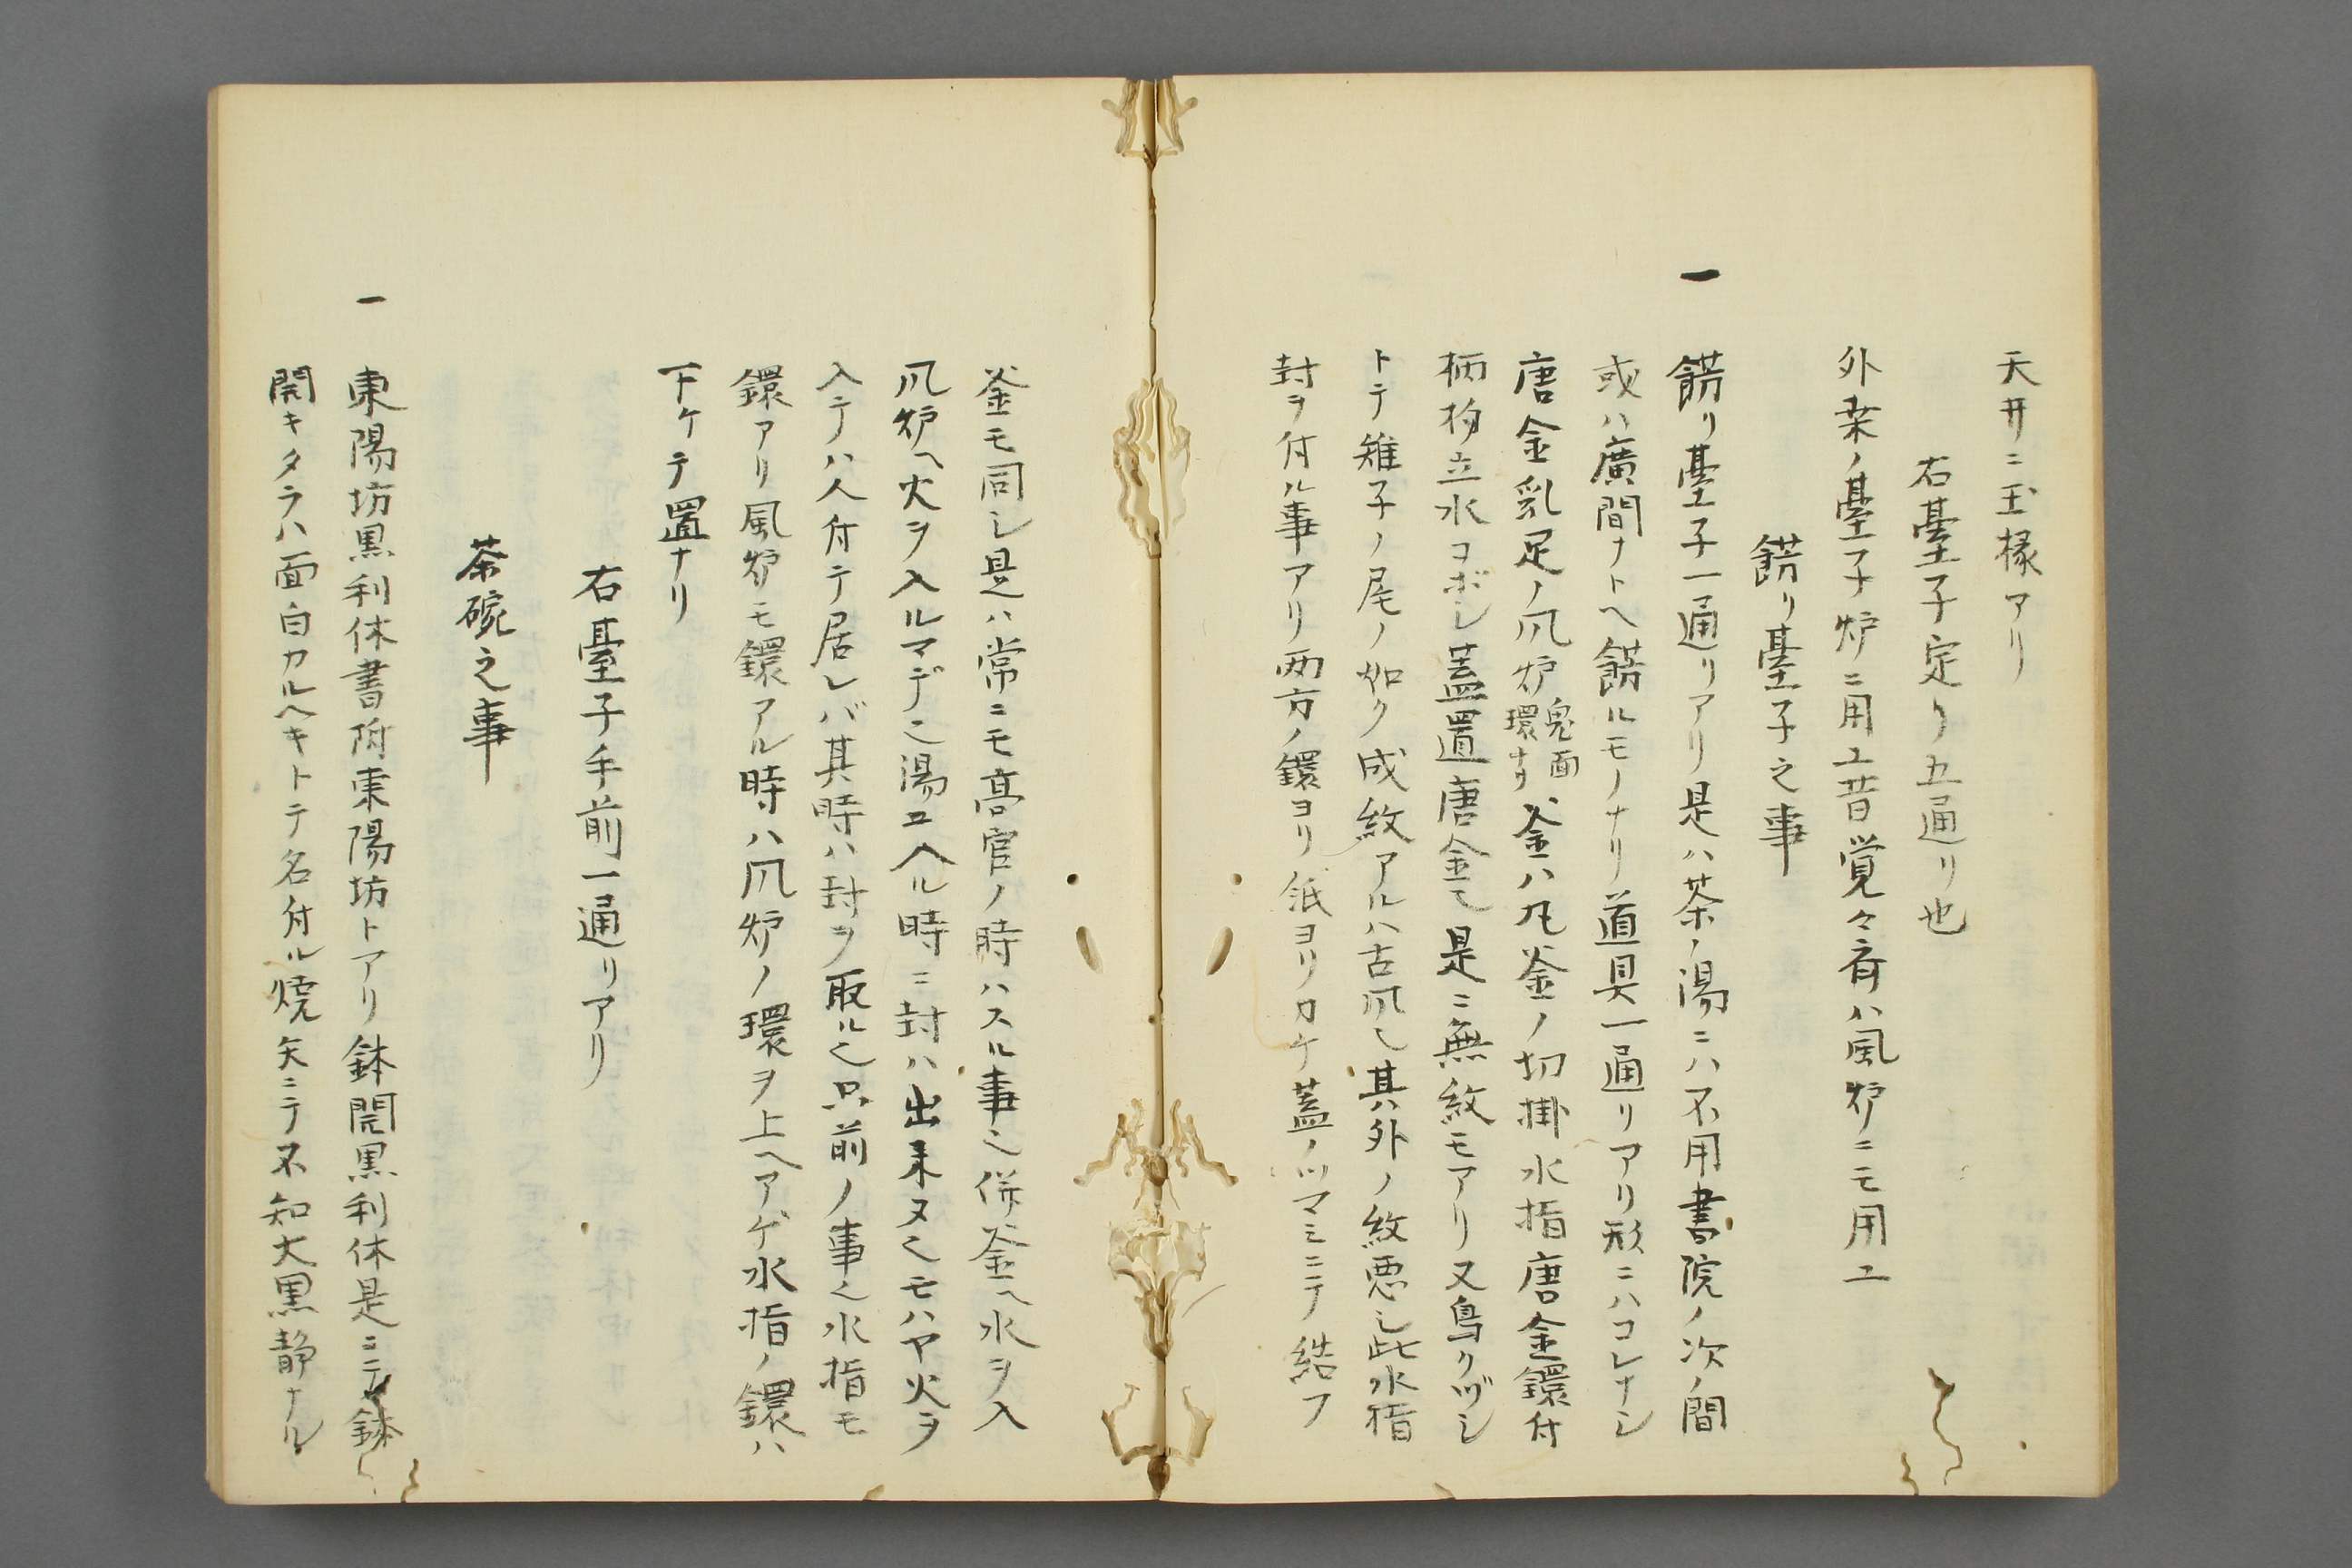 天井ニ玉椽アリ
右臺子定リ五通リ也
外桒ノ臺子炉ニ用ユ昔覚々斎ハ風炉ニモ用ユ
餝リ臺子之事
一 餝リ臺子一通リアリ是ハ茶ノ湯ニハ不用書院ノ次ノ間
或ハ廣間ナトヘ餝ルモノナリ道具一通リアリ形ニハコレナシ
唐金乳足ノ凡炉鬼面環ナリ釜ハ丸釜ノ切掛水指唐金鐶付
柄杓立水コボシ蓋置唐金也是ニ無紋モアリ又鳥クヅシ
トテ雉子ノ尾ノ如ク成紋アルハ古凡也其外ノ紋悪シ此水指
封ヲ付ル事アリ両方ノ鐶ヨリ紙ヨリカケ蓋ノツマミニテ結フ
釜モ同シ是ハ常ニモ高官ノ時ハスル事也併釜ヘ水ヲ入
凡炉ヘ火ヲ入ルマデ也湯ユヘル時ニ封ハ出来ヌ也モハヤ火ヲ
入テハ人付テ居レバ其時ハ封ヲ取ル也只前ノ事也水指モ
鐶アリ風炉モ鐶アル時ハ凡炉ノ環ヲ上ヘアゲ水指ノ鐶ハ
下ケテ置ナリ
右臺子手前一通リアリ
茶碗之事
一 東陽坊黒利休書附東陽坊トアリ鉢開黒利休是ニテ鉢
開キタラハ面白カルヘキトテ名付ル焼矢ニテ不知大黒静ナル